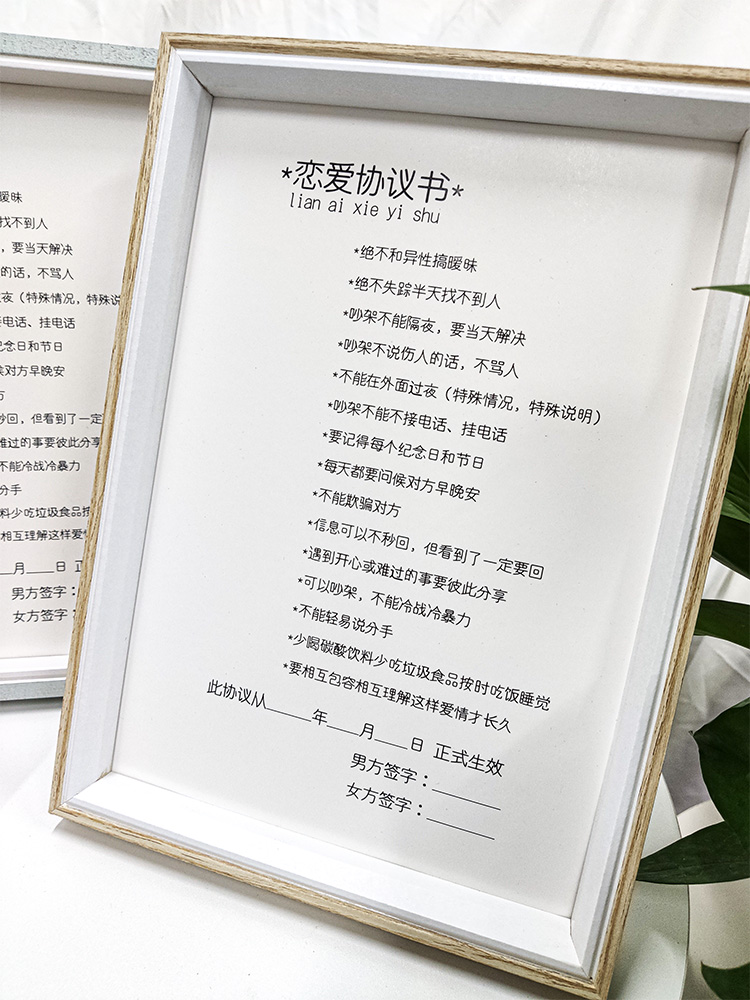 *恋爱协议书*
lian ai xie yi shu
*绝不和异性搞暧昧
*绝不失踪半天找不到人
*吵架不能隔夜，要当天解决
*吵架不说伤人的话，不骂人
*不能在外面过夜（特殊情况，特殊说明）
*吵架不能不接电话、挂电话
*要记得每个纪念日和节日
*每天都要问候对方早晚安
*不能欺骗对方
*信息可以不秒回，但看到了一定要回
*遇到开心或难过的事要彼此分享
*可以吵架，不能冷战冷暴力
*不能轻易说分手
*少喝碳酸饮料少吃垃圾食品按时吃饭睡觉
*要相互包容相互理解这样爱情才长久
此协议从_____年___月___日 正式生效
男方签字：______
女方签字：______
暧昧
找不到人
，要当天解决
的话，不骂人
过夜（特殊情况，特殊说
接电话、挂电话
纪念日和节日
候对方早晚安
方
秒回，但看到了一定
难过的事要彼此分享
不能冷战冷暴力
分手
料少吃垃圾食品按
相互理解这样爱
___月___日 正
男方签字：
女方签字：